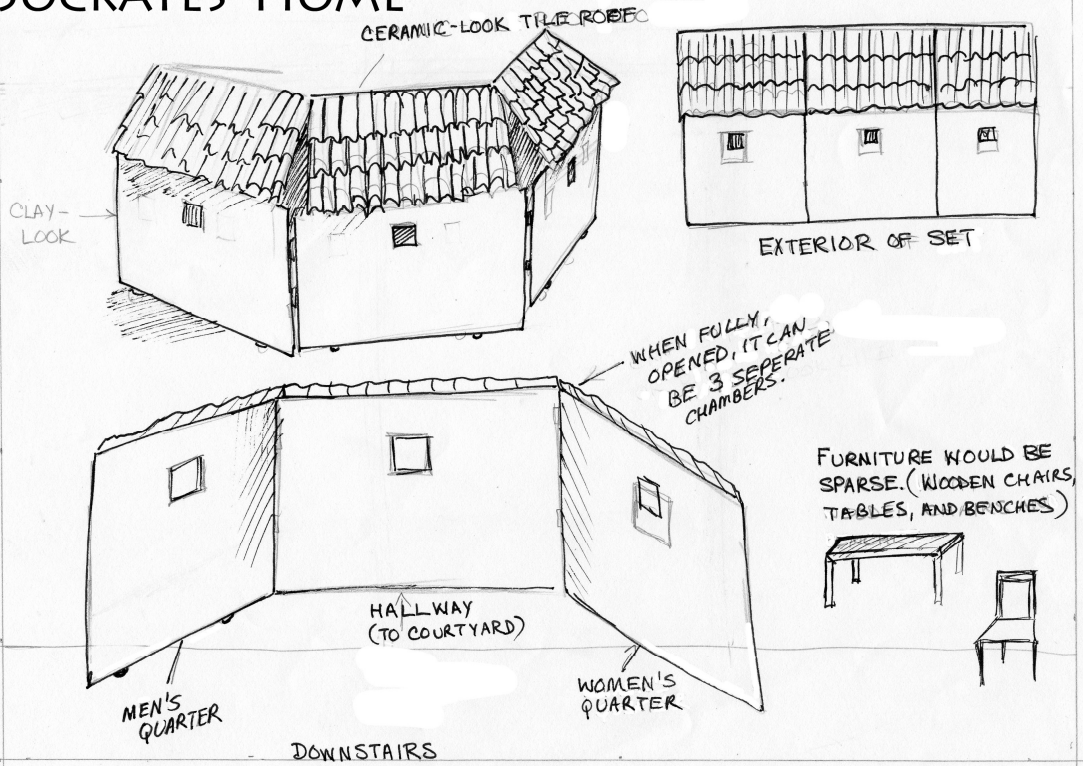 SOCRATES' HOME
CERAMIC-LOOK TILE
CLAY-
LOOK
EXTERIOR OF SET
WHEN FULLY,
OPENED, IT CAN
BE 3 SEPERATE
CHAMBERS.
FURNITURE WOULD BE
SPARSE. (WOODEN CHAIRS,
TABLES, AND BENCHES)
HALLWAY
(TO COURTYARD)
MEN'S
QUARTER
WOMEN'S
QUARTER
DOWNSTAIRS